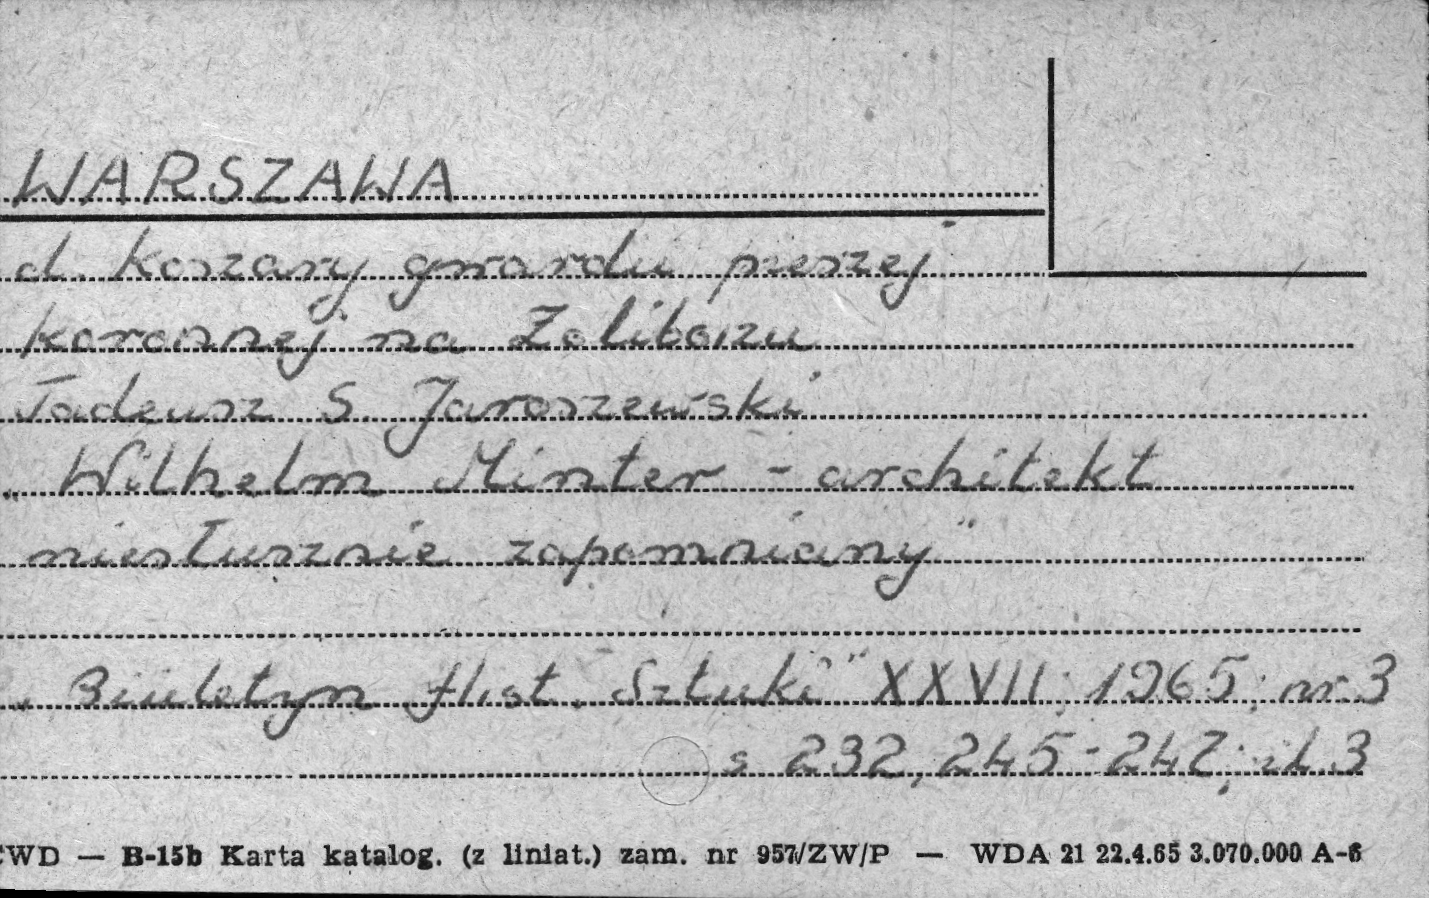 WARSZAWA
d. Koszary gwardii pieszej
koronnej na Żoliborzu
Tadeusz S. Jaroszewski
„Wilhelm Minter - architekt
niesłusznie zapomniany"
„Biuletyn Hist. Sztuki" XXVII; 1965; nr 3
s 232, 245-247; il. 3
CWD — B-15b Karta katalog. (z liniat.) zam. nr 957/ZW/P — WDA 21 22.4.65 3.070.000 A-6